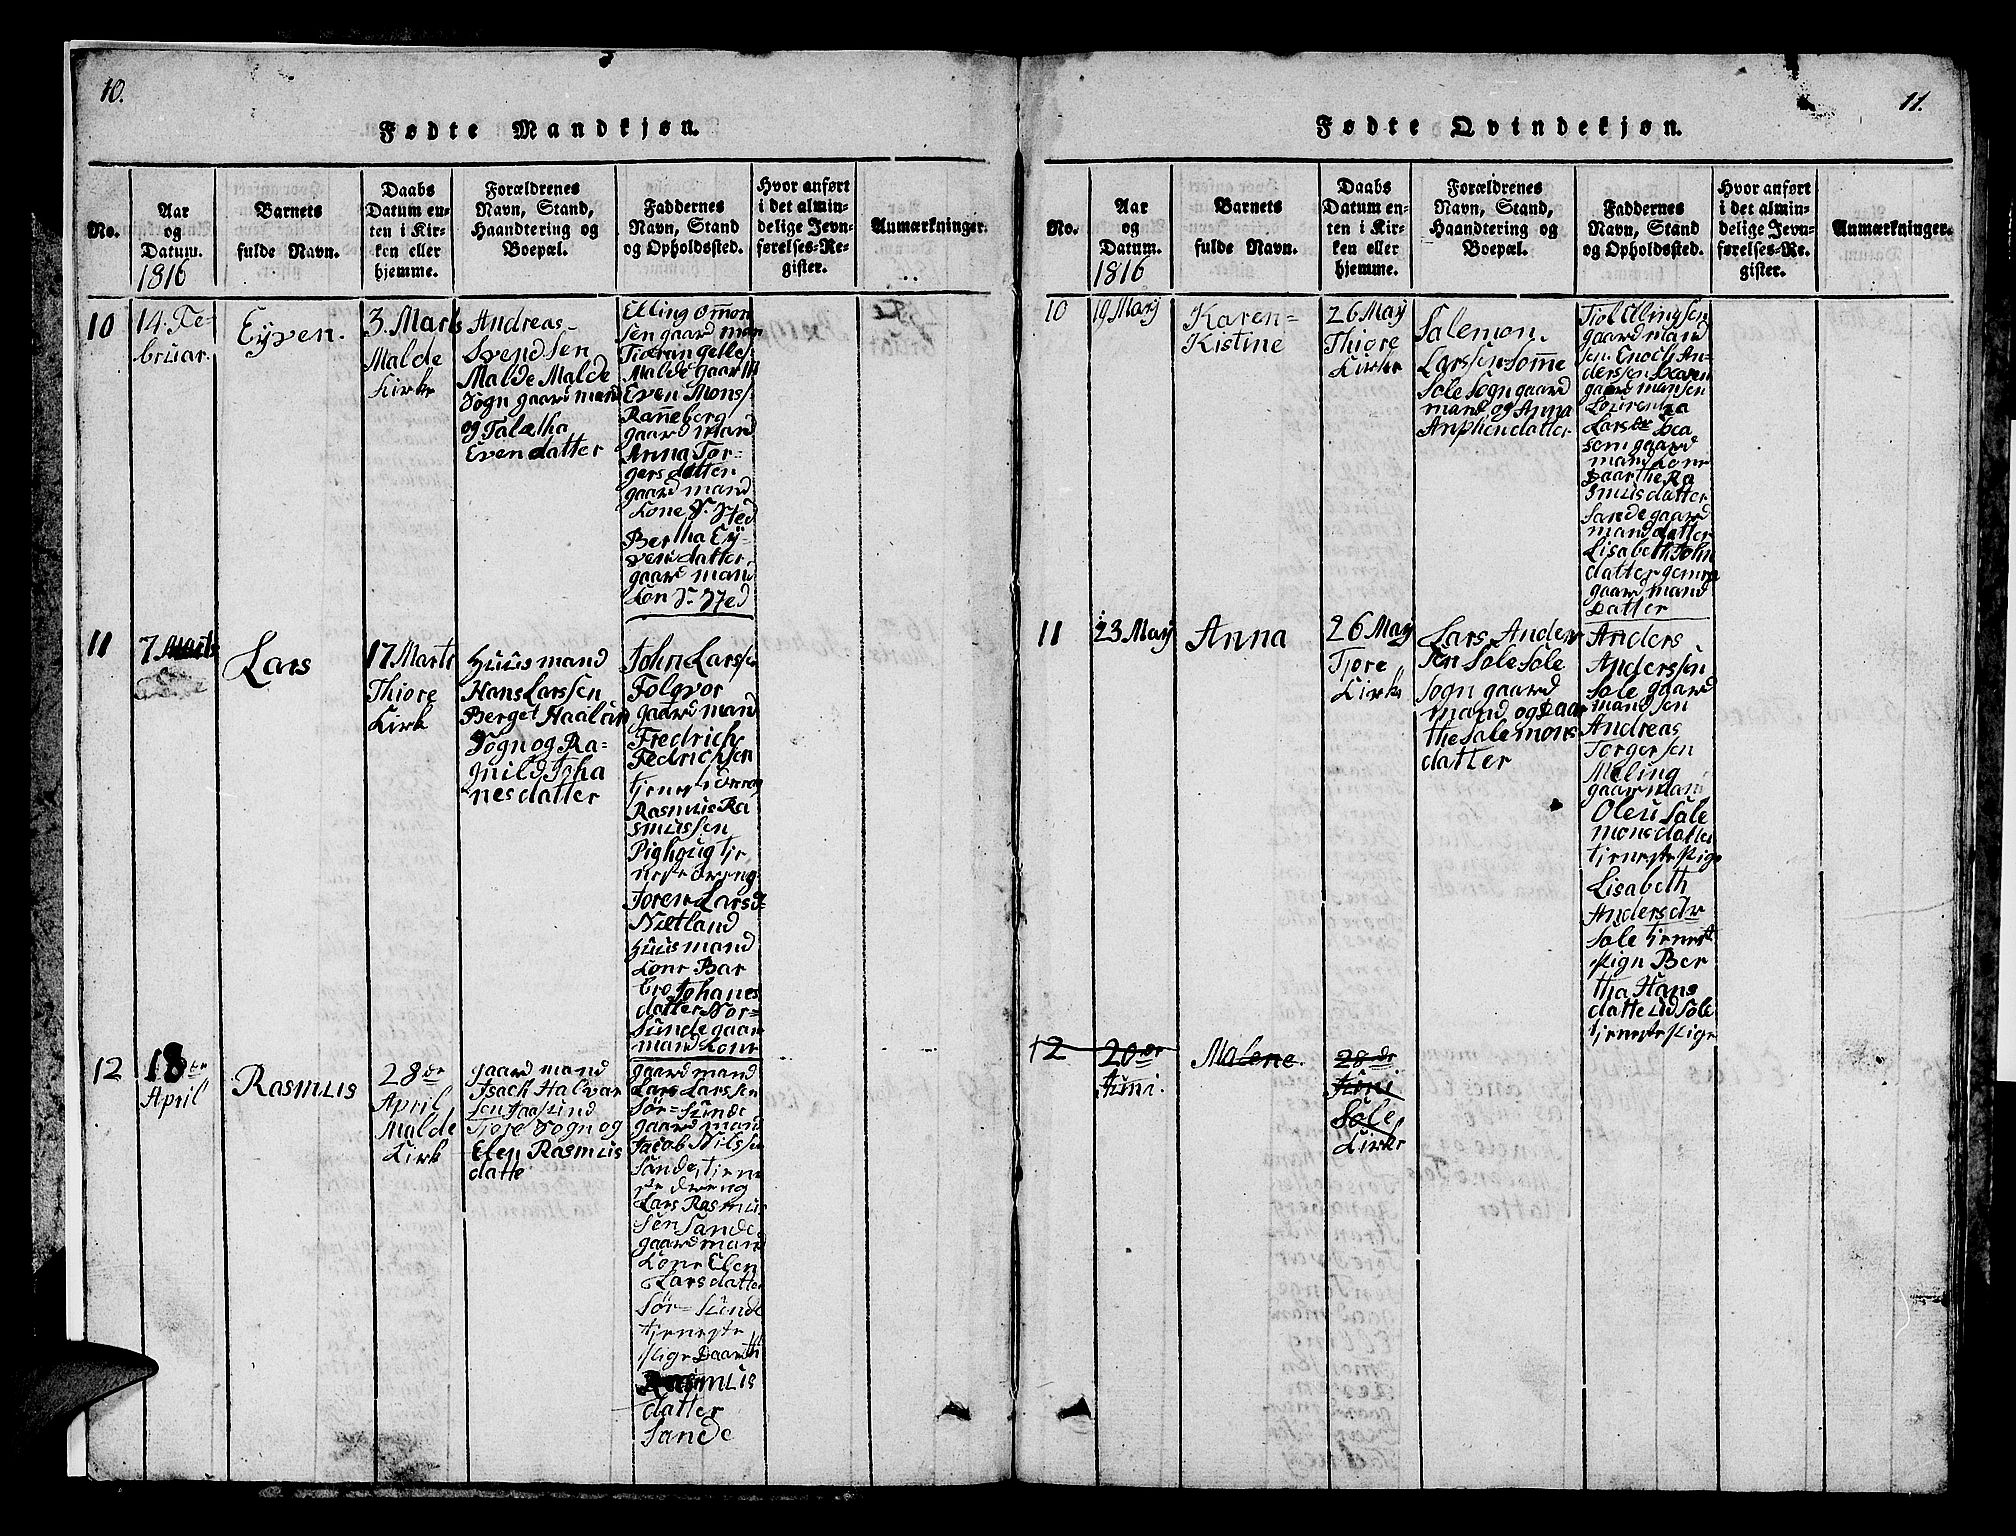 10.
Fødte Mandkjøn.
No.
Aar
og
Datum.
1816
Barnets
fulde Navn.
Daabs
Datum en-
ten i Kir-
ken eller
hjemme.
Forældrenes
Navn, Stand,
Haandtering og
Boepæl.
Faddernes
Navn, Stand
og Opholdssted.
Hvor anført
i det almin-
delige Jevn-
førelses-Re-
gister.
Anmærkninger.
10
14. Fe-
bruar.
Eyven.
3. Marts
Malde
Kirke
Andreas
Svendsen
Malde Malde
Sogn gaard mand
og Talætha
Evendatter
Elling
sen gaard man
Malde gaard
Even Mons
Ranneberg
gaard mand
Anna Tor-
gersdatter
gaard mand
Kone S. Sted
Bertha Ey-
vendatter
gaard mand
Kon S. Sted
11
7 Marts
Lars
17 Marti
Thiore
Kirk
Huusmand
Hans Larssen
Berget Haaland
Sogn og Ra-
gnild Joha
nesdatter
John Larssen
Folqvor
gaard mand
Fredrich
Fedrichsen
Rasmus Ra
smussen
tje
neste dreng
Joren Lars
Nætland
Huusmand
Kone Bar
bro Johanes
datter Nor-
Sunde gaar
mand Kone
12
18 en
April
Rasmus
28 en
April
Malde
Kirk
gaard mand
Isach Halvar
sen Jaasund
Tjore Sogn og
Elen Rasmus
datte
gaard mand
Lars Larssen
Sör=Sunde
gaard mand
Jacob Nilssen
Sande, tjene
ste dreng
Lars Rasmus
sen Sande
gaard mand
Kone Elen
Larsdatter
Sör=Sunde
tjeneste
Pige Daarth
Rasmus
datter
Sande
11.
Fødte Qvindekjøn.
No.
Aar
og
Datum.
1816
Barnets
fulde Navn.
Daabs
Datum en-
ten i Kir-
ken eller
hjemme.
Forældrenes
Navn, Stand,
Haandtering og
Boepæl.
Faddernes
Navn, Stand
og Opholdssted.
Hvor anført
i det almin-
delige Jevn-
førelses-Re-
gister.
Anmærkninger.
10
19 May
Karen=
Kistine
26 May
Thiore
Kirke
Salemon
Larssen Somme
Sole Sogn gaard
mand og Anna
datter
gaard mand
sen Enoch An-
derssen
gaard mansen
Lourentza
som gaard
mand Kone
Daarthe Ra
smusdatter
Sande gaard
mand datter
Lisabeth John
datter
gaard mand
Datter
11
23 May
Anna
26 May
Tjore
Kirke
Lars Ander
sen Sole Sole
Sogn gaard
mand og Daar
the Salemons
datter
Anders
Anderssen
Sole gaard
mand sen
Andreas
Torgersen
Meling
gaar mand
Oleu Sale
monsdatter
tjeneste Pige
Lisabeth
Andersdr
Sole tjenest
Pign Ber
tha Hans
datte Sole
tjeneste Pige
12
20 de
Juni.
Malene.
28 de
Juni
Sole
Kirke